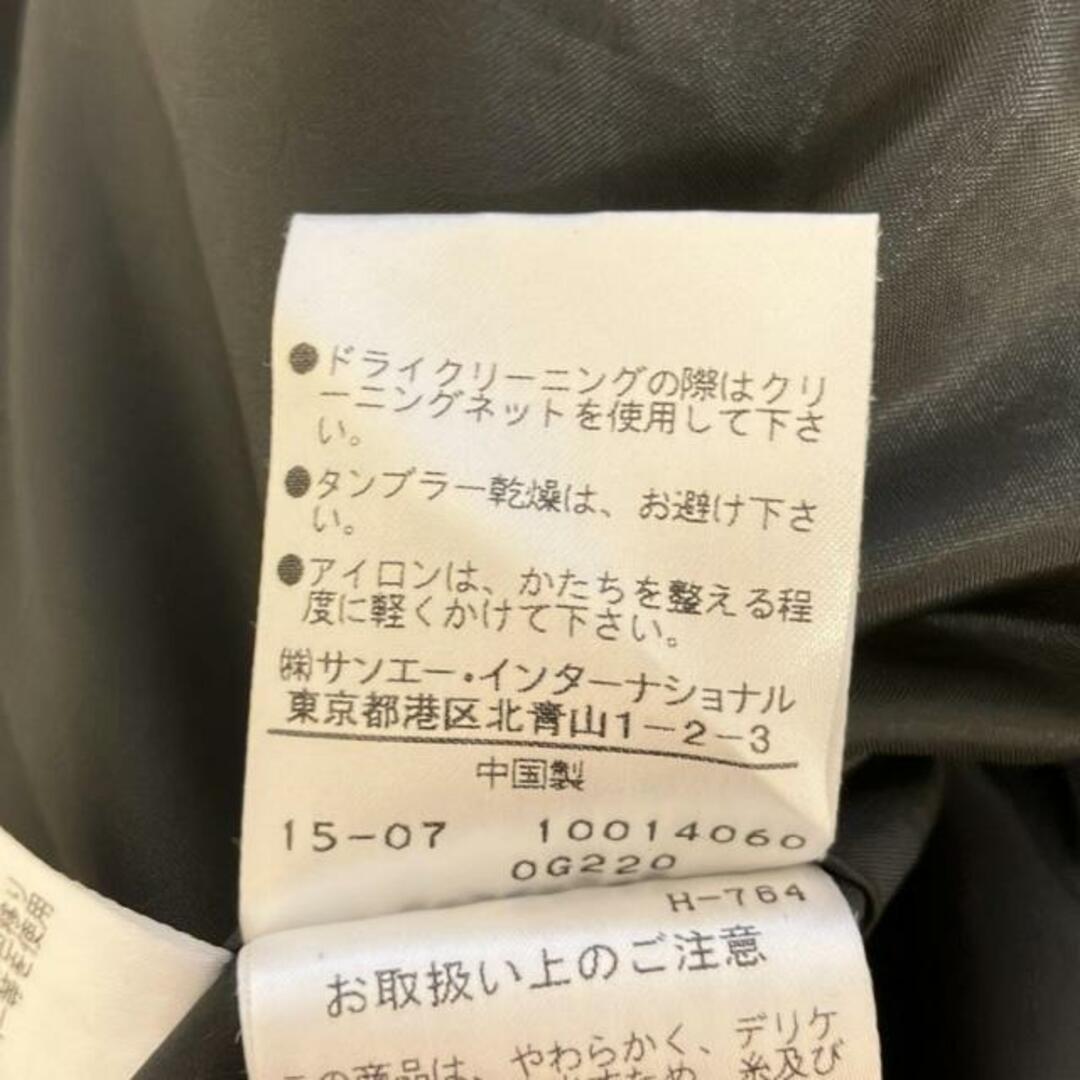 ●ドライクリーニングの際はクリ
ーニングネットを使用して下さ
い。
●タンブラー乾燥は、お避け下さ
い。
●アイロンは、かたちを整える程
度に軽くかけて下さい。
㈱サンエー・インターナショナル
東京都港区北青山1-2-3
中国製
15-07 10014060
0G220
H-764
お取扱い上のご注意
この商品は、やわらかく、デリケ
糸及び